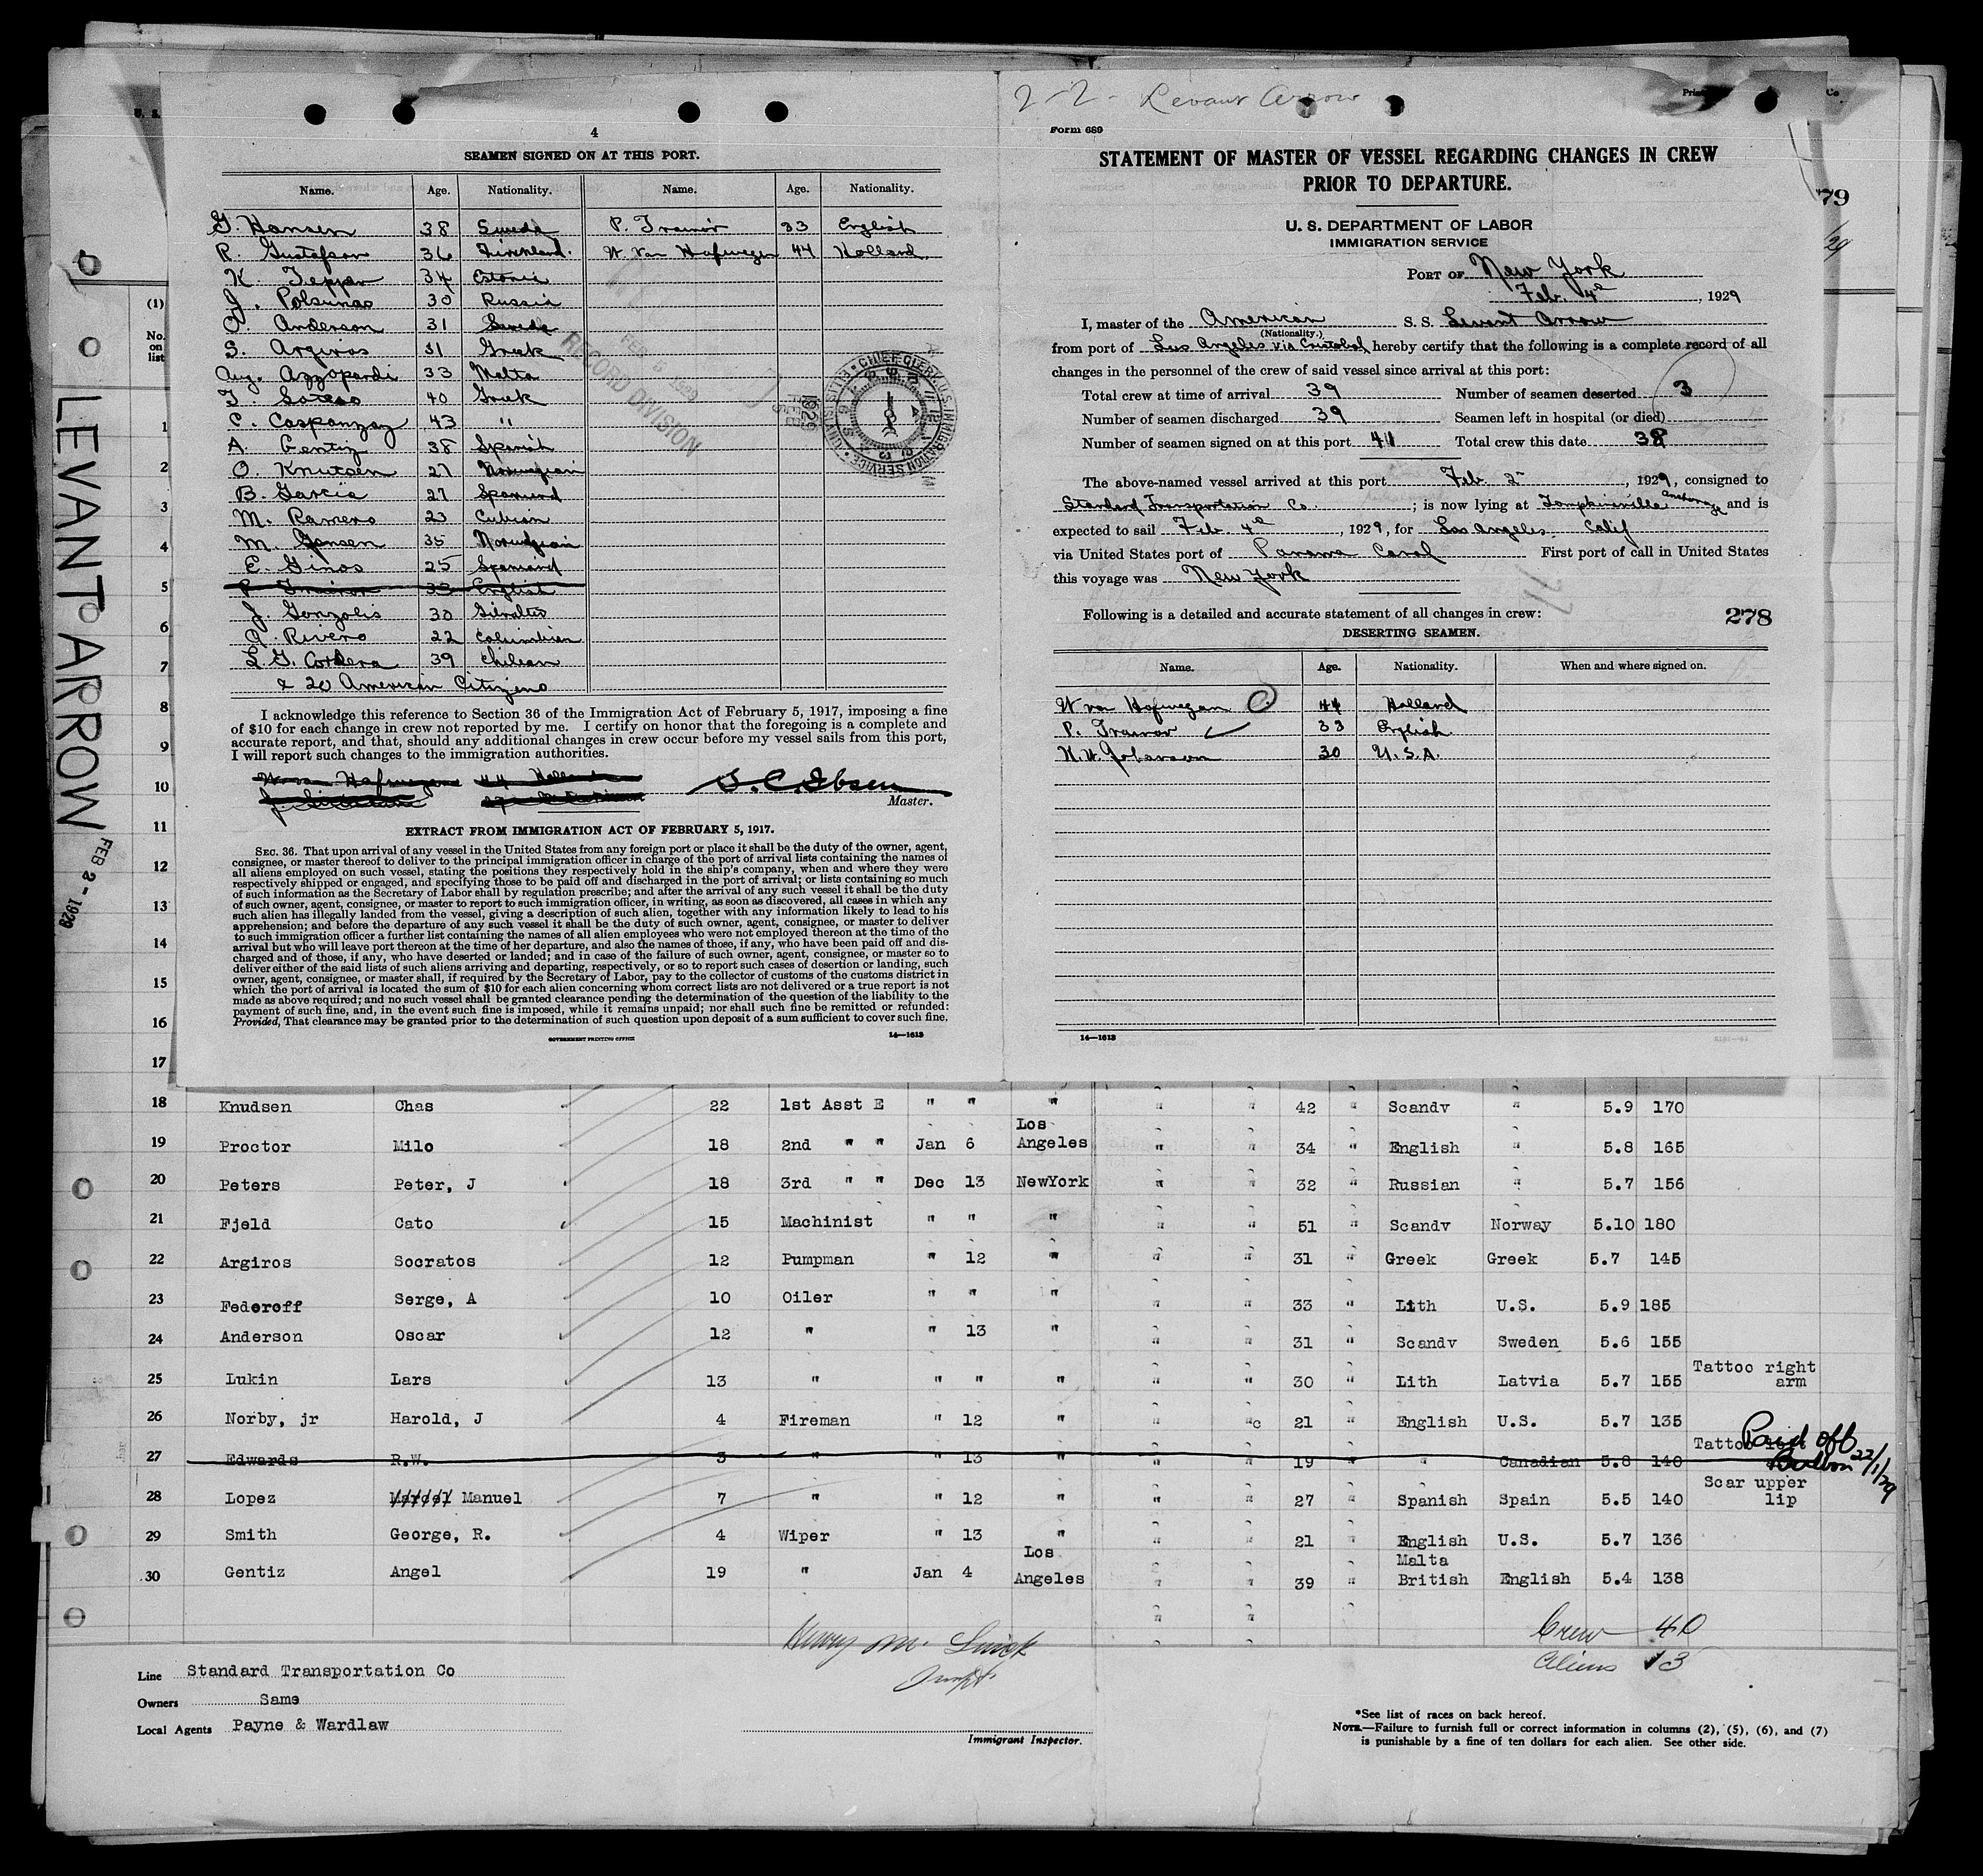 4
SEAMEN SIGNED ON AT THIS PORT.
Name. Age. Nationality. Name. Age. Nationality.
G. Hansen 38 Sweda P. Trainor 33 English
R. Gustafson 36 Finnland. W Van Hofwegen 44 Holland
K. Tepper 34 Estonia
J. Polsunas 30 Russia
O. Anderson 31 Sweda
S. Argiros 31 Greek
Aug. Azzopardi 33 Malta
T. Soteas 40 Greek
C. Caspanzay 43 "
A Gentiz 38 Spanish
O. Knutsen 27 Norwegian
B. Garcia 27 Spaniard
M. Ramero 23 Cubian
M. Jansen 35 Norwegian
E. Ginos 25 Spaniard
P Trainor 33 English
J. Gonzalis 30 Gibralter
A. Rivero 22 Columbian
L. G. Cordera 39 Chilean
& 20 American Citizens
I acknowledge this reference to Section 36 of the Immigration Act of February 5, 1917, imposing a fine
of $10 for each change in crew not reported by me. I certify on honor that the foregoing is a complete and
accurate report, and that, should any additional changes in crew occur before my vessel sails from this port,
I will report such changes to the immigration authorities.
W van Hofwegen 44 Holland
T. C. Ibsen
Master.
EXTRACT FROM IMMIGRATION ACT OF FEBRUARY 5, 1917.
SEC. 36. That upon arrival of any vessel in the United States from any foreign port or place it shall be the duty of the owner, agent,
consignee, or master thereof to deliver to the principal immigration officer in charge of the port of arrival lists containing the names of
all aliens employed on such vessel, stating the positions they respectively hold in the ship's company, when and where they were
respectively shipped or engaged, and specifying those to be paid off and discharged in the port of arrival; or lists containing so much
of such information as the Secretary of Labor shall by regulation prescribe; and after the arrival of any such vessel it shall be the duty
of such owner, agent, consignee, or master to report to such immigration officer, in writing, as soon as discovered, all cases in which any
such alien has illegally landed from the vessel, giving a description of such alien, together with any information likely to lead to his
apprehension; and before the departure of any such vessel it shall be the duty of such owner, agent, consignee, or master to deliver
to such immigration officer a further list containing the names of all alien employees who were not employed thereon at the time of the
arrival but who will leave port thereon at the time of her departure, and also the names of those, if any, who have been paid off and dis-
charged and of those, if any, who have deserted or landed; and in case of the failure of such owner, agent, consignee, or master so to
deliver either of the said lists of such aliens arriving and departing, respectively, or so to report such cases of desertion or landing, such
owner, agent, consignee, or master shall, if required by the Secretary of Labor, pay to the collector of customs of the customs district in
which the port of arrival is located the sum of $10 for each alien concerning whom correct lists are not delivered or a true report is not
made as above required; and no such vessel shall be granted clearance pending the determination of the question of the liability to the
payment of such fine, and, in the event such fine is imposed, while it remains unpaid; nor shall such fine be remitted or refunded:
Provided, That clearance may be granted prior to the determination of such question upon deposit of a sum sufficient to cover such fine.
GOVERNMENT PRINTING OFFICE 14—1613
RECORD DIVISION
1929 FEB
CHIEF CLERK U.S. IMMIGRATION SERVICE
2-2- Levant Arrow
Form 689
STATEMENT OF MASTER OF VESSEL REGARDING CHANGES IN CREW
PRIOR TO DEPARTURE.
79
U. S. DEPARTMENT OF LABOR
IMMIGRATION SERVICE
PORT OF New York
Feb. 4th, 1929
I, master of the American S. S. Levant Arrow
(Nationality.)
from port of Los Angeles via Cristobal hereby certify that the following is a complete record of all
changes in the personnel of the crew of said vessel since arrival at this port:
Total crew at time of arrival 39 Number of seamen deserted 3
Number of seamen discharged 39 Seamen left in hospital (or died)
Number of seamen signed on at this port 41 Total crew this date 38
The above-named vessel arrived at this port Feb. 2, 1929, consigned to
Standard Transportation Co. ; is now lying at Tompkinsville Anchorage and is
expected to sail Feb 4th, 1929, for Los Angeles Calif
via United States port of Panama Canal First port of call in United States
this voyage was New York
Following is a detailed and accurate statement of all changes in crew: 278
DESERTING SEAMEN.
Name. Age. Nationality. When and where signed on.
W van Hofwegan 44 Holland
P. Trainor 33 English
30 U.S.A.
14—1613
LEVANT ARROW FEB 2 - 1929
(1)
No. on list
1
2
3
4
5
6
7
8
9
10
11
12
13
14
15
16
17
18 Knudsen Chas 22 1st Asst E " " " " " 42 " Scandv " 5.9 170
19 Proctor Milo 18 2nd " " Jan 6 Los Angeles " " 34 " English " 5.8 165
20 Peters Peter, J 18 3rd " " Dec 13 NewYork " " 32 " Russian " 5.7 156
21 Fjeld Cato 15 Machinist " " " " " 51 " Scandv Norway 5.10 180
22 Argiros Socratos 12 Pumpman " 12 " " " 31 " Greek Greek 5.7 145
23 Federoff Serge, A 10 Oiler " " " " " 33 " Lith U.S. 5.9 185
24 Anderson Oscar 12 " " 13 " " " 31 " Scandv Sweden 5.6 155
25 Lukin Lars 13 " " " " " " 30 " Lith Latvia 5.7 155 Tattoo right arm
26 Norby, jr Harold, J 4 Fireman " 12 " " "c 21 " English U.S. 5.7 135
27 Edwards R.W. 3 " " 13 " " " 19 " " Canadian 5.8 140 Tattoo Paid off Balboa 22/1/29
28 Lopez Marcel Manuel 7 " " 12 " " " 27 " Spanish Spain 5.5 140 Scar upper lip
29 Smith George, R. 4 Wiper " 13 " " " 21 " English U.S. 5.7 136
30 Gentiz Angel 19 " Jan 4 Los Angeles " " 39 " Malta British English 5.4 138
Crew 40
Aliens 13
Line Standard Transportation Co
Owners Same
Local Agents Payne & Wardlaw
Henry M.
Immigrant Inspector.
*See list of races on back hereof.
NOTE.—Failure to furnish full or correct information in columns (2), (5), (6), and (7)
is punishable by a fine of ten dollars for each alien. See other side.